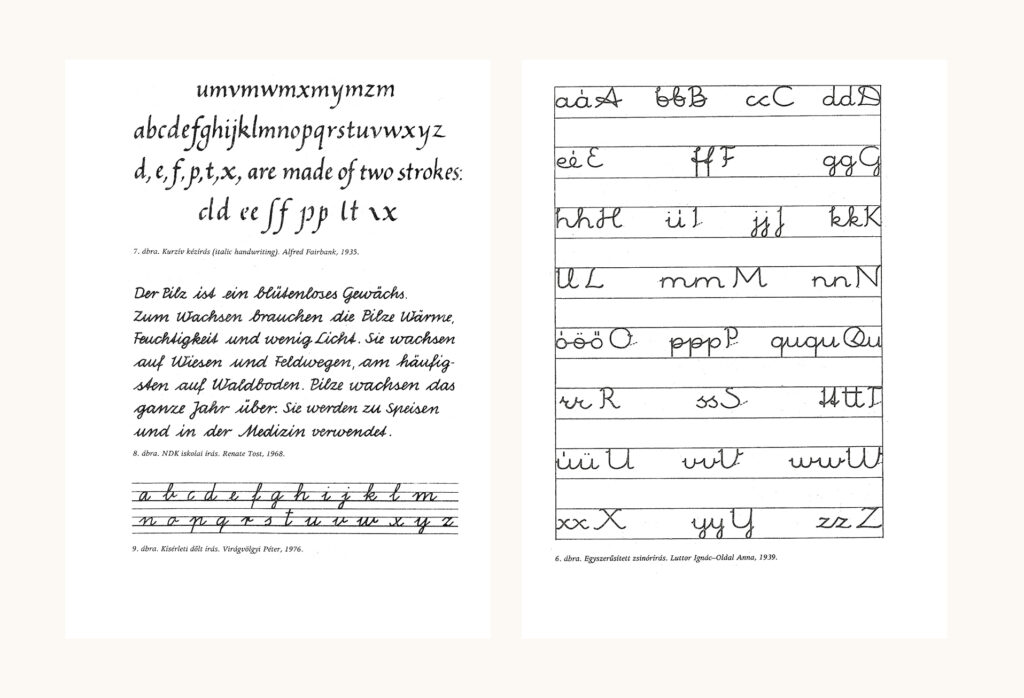 umvmwmxmymzm
abcdefghijklmnopqrstuvwxyz
d, e, f, p, t, x, are made of two strokes:
cld ee ſf pp lt ıx
7. ábra. Kurzív kézírás (italic handwriting). Alfred Fairbank, 1935.
Der Pilz ist ein blütenloses Gewächs.
Zum Wachsen brauchen die Pilze Wärme,
Feuchtigkeit und wenig Licht. Sie wachsen
auf Wiesen und Feldwegen, am häufig-
sten auf Waldboden. Pilze wachsen das
ganze Jahr über. Sie werden zu Speisen
und in der Medizin verwendet.
8. ábra. NDK iskolai írás. Renate Tost, 1968.
a b c d e f g h i j k l m
n o p q r s t u v w x y z
9. ábra. Kísérleti dőlt írás. Virágvölgyi Péter, 1976.
aáA bbB ccC ddD
eéE ffF ggG
hhH iíI jjJ kkK
llL mmM nnN
óöőO pppP ququQu
rrR ssS tttT
úüU vvV wwW
xxX yyY zzZ
6. ábra. Egyszerűsített zsinórírás. Luttor Ignác–Oldal Anna, 1939.